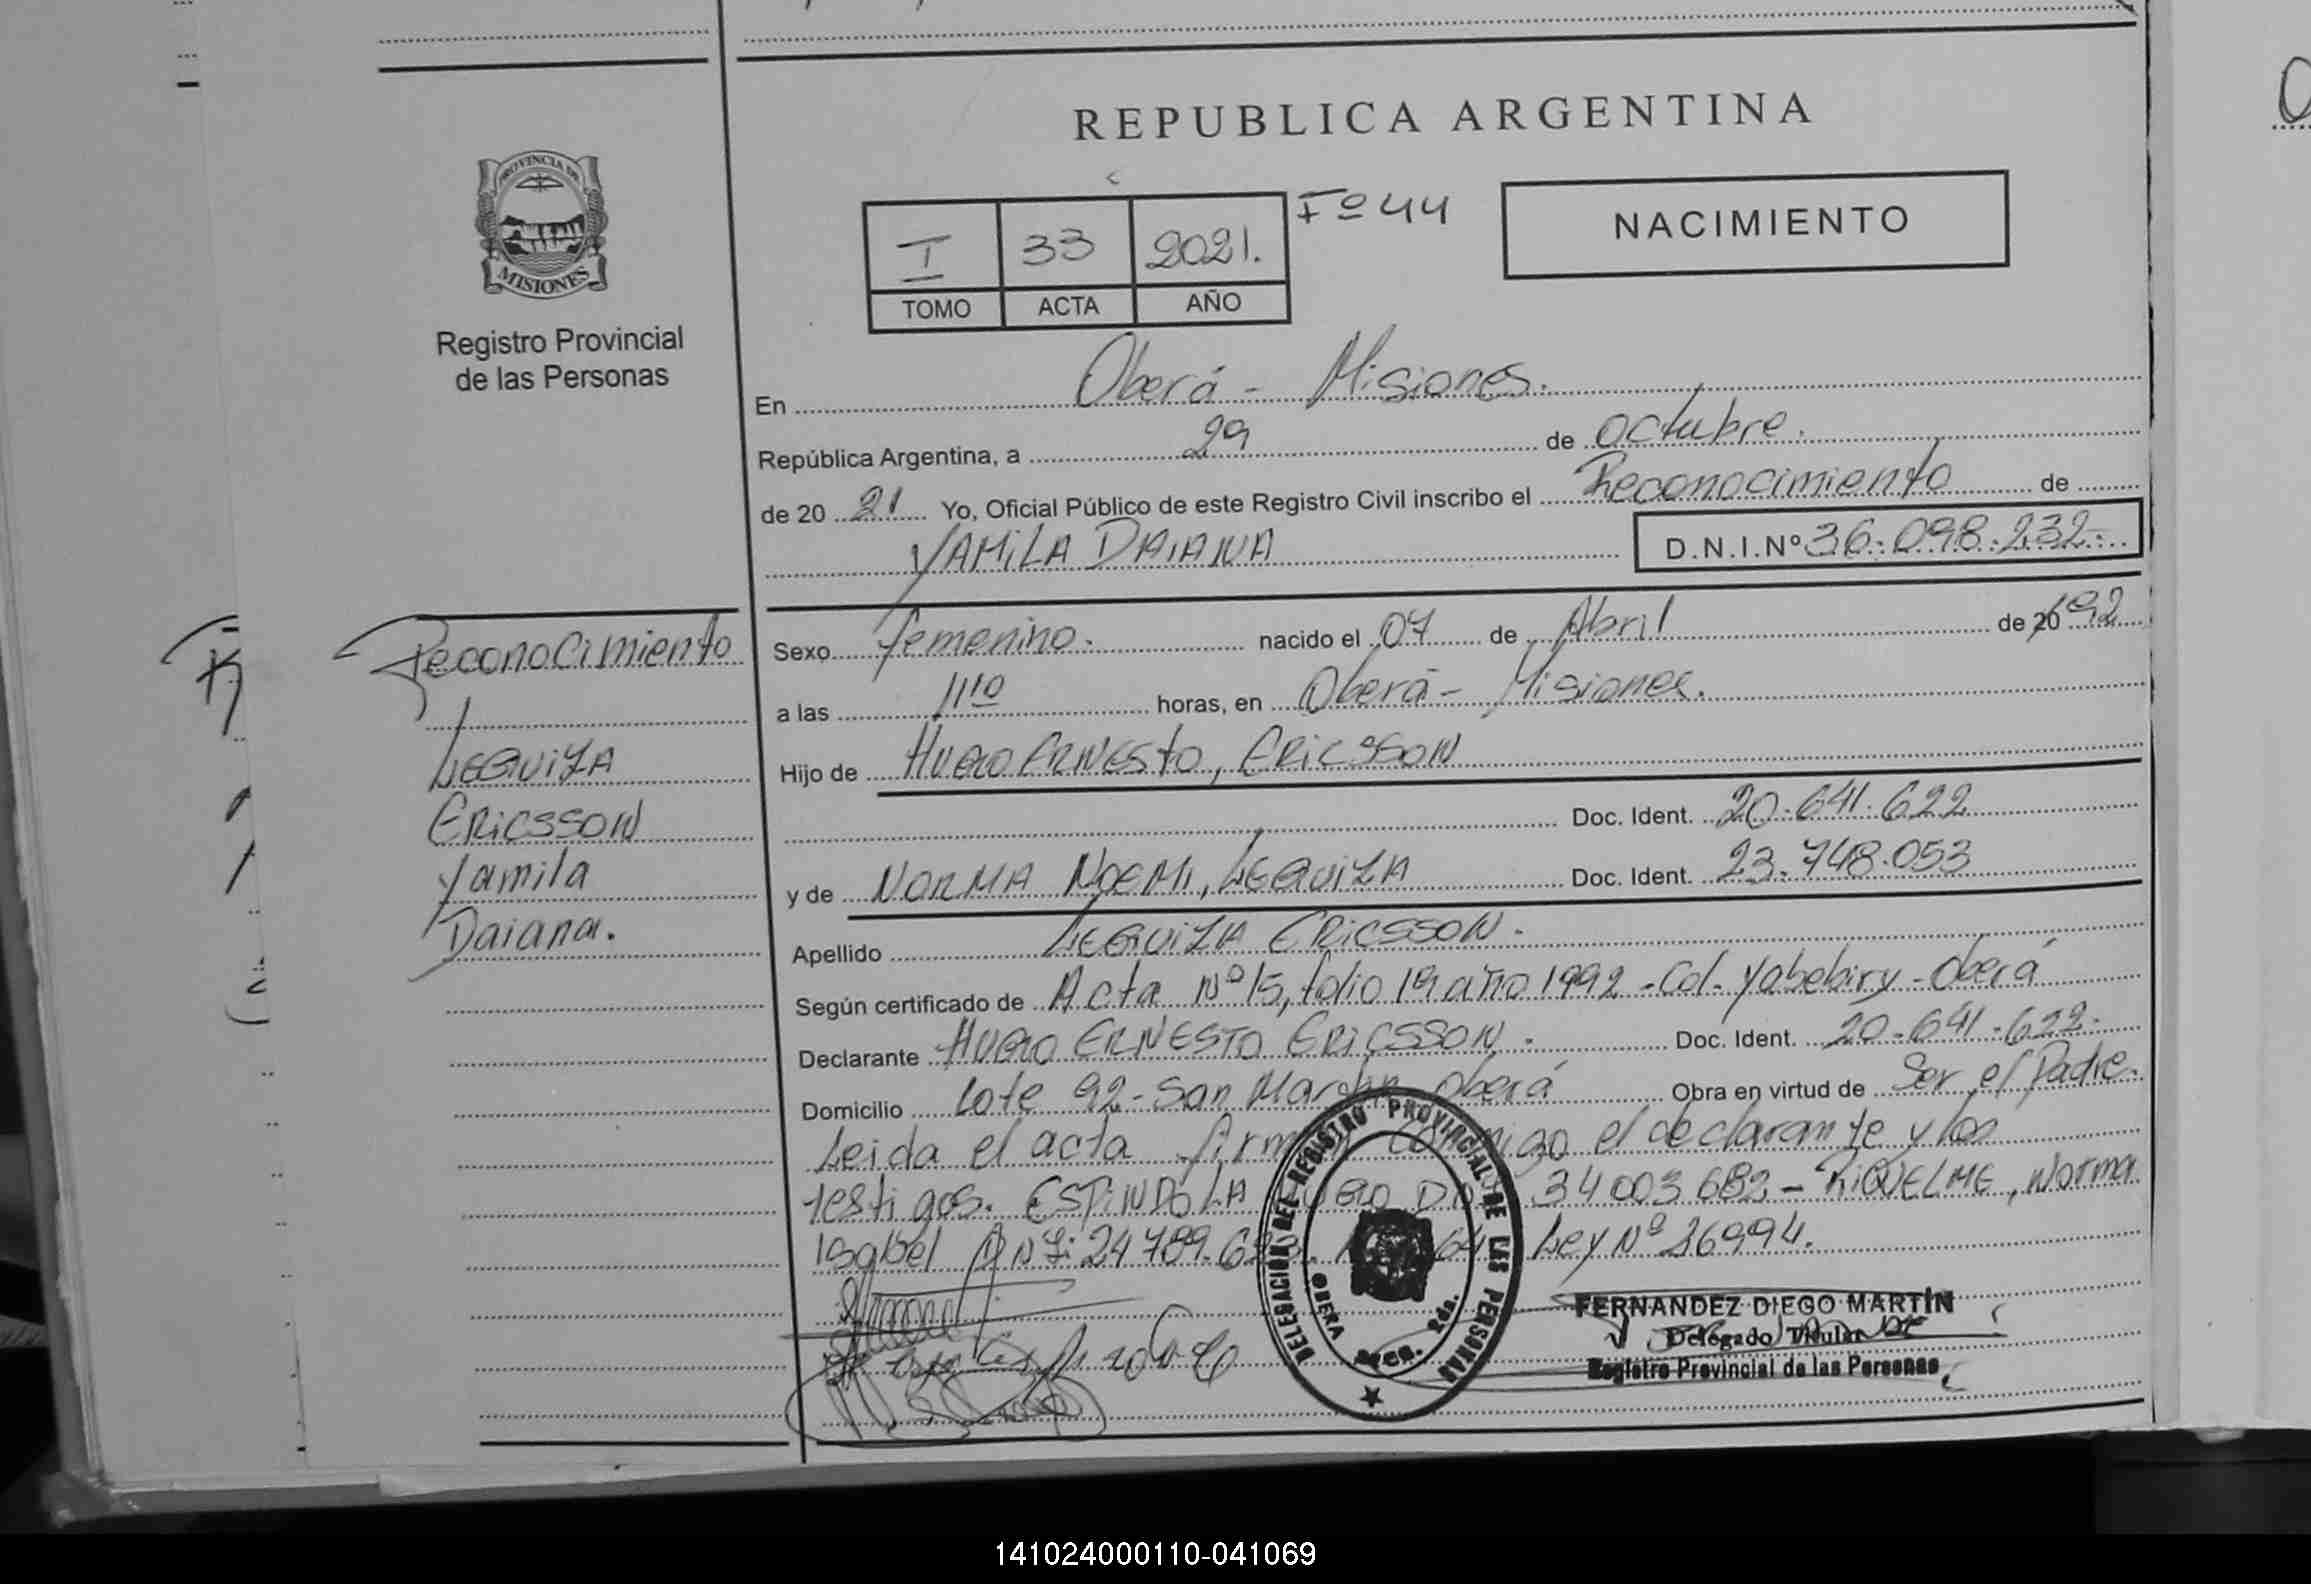 REPUBLICA ARGENTINA
PROVINCIA DE
MISIONES
Registro Provincial
de las Personas
I 33 2021. Fº 44
TOMO ACTA AÑO
NACIMIENTO
En Oberá - Misiones.
República Argentina, a 29 de octubre.
de 20 21 Yo, Oficial Público de este Registro Civil inscribo el Reconocimiento de
YAMILA DAIANA D.N.I.Nº 36.098.232-
Reconocimiento
LEGUIZA
ERICSSON
Yamila
Daiana.
Sexo femenino. nacido el 07 de Abril de 20 1992
a las 11:10 horas, en Oberá - Misiones.
Hijo de HUGO ERNESTO, ERICSSON
Doc. Ident. 20.641.622
y de NORMA NOEMI, LEGUIZA Doc. Ident. 23.748.053
Apellido LEGUIZA ERICSSON.
Según certificado de Acta Nº 15, folio 19 año 1992 - Col. Yabebiry - Oberá
Declarante HUGO ERNESTO ERICSSON. Doc. Ident. 20.641.622-
Domicilio Lote 92 - San Martin Oberá Obra en virtud de Ser el Padre.
Leida el acta firman conmigo el declarante y los
testigos. ESPINDOLA HUGO 34003682 - RIQUELME, Norma
Isabel DNI: 24789.6 Ley Nº 26994.
DELEGACION DEL REGISTRO PROVINCIAL DE LAS PERSONAS
OBERA Secc. 2da.
FERNANDEZ DIEGO MARTÍN
Delegado Titular
Registro Provincial de las Personas
141024000110-041069